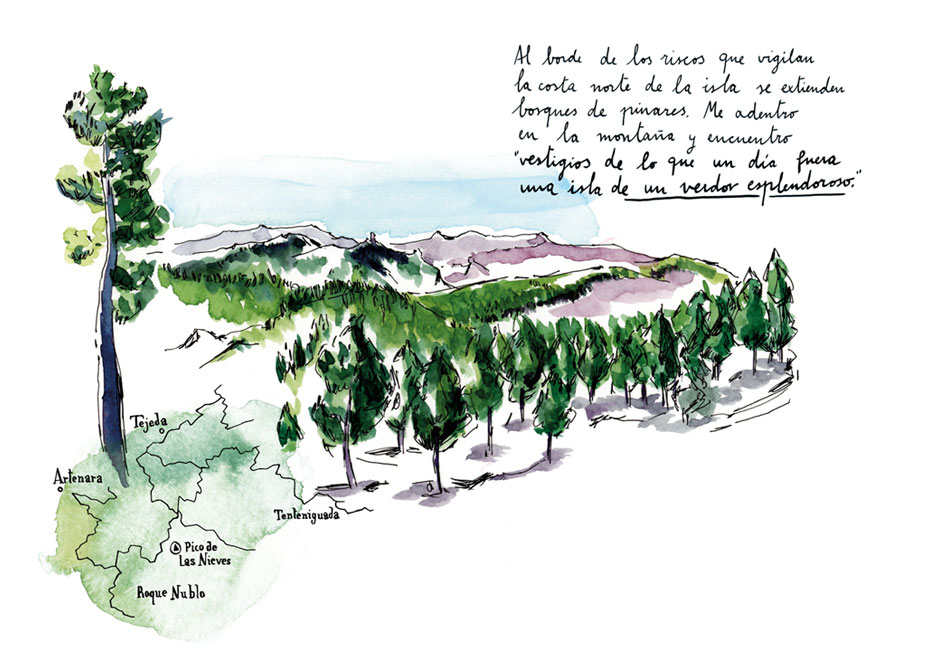 Al borde de los riscos que vigilan
la costa norte de la isla se extienden
bosques de pinares. Me adentro
en la montaña y encuentro
"vestigios de lo que un día fuera
una isla de un verdor esplendoroso."
Tejeda
Artenara
Tenteniguada
Pico de
Las Nieves
Roque Nublo